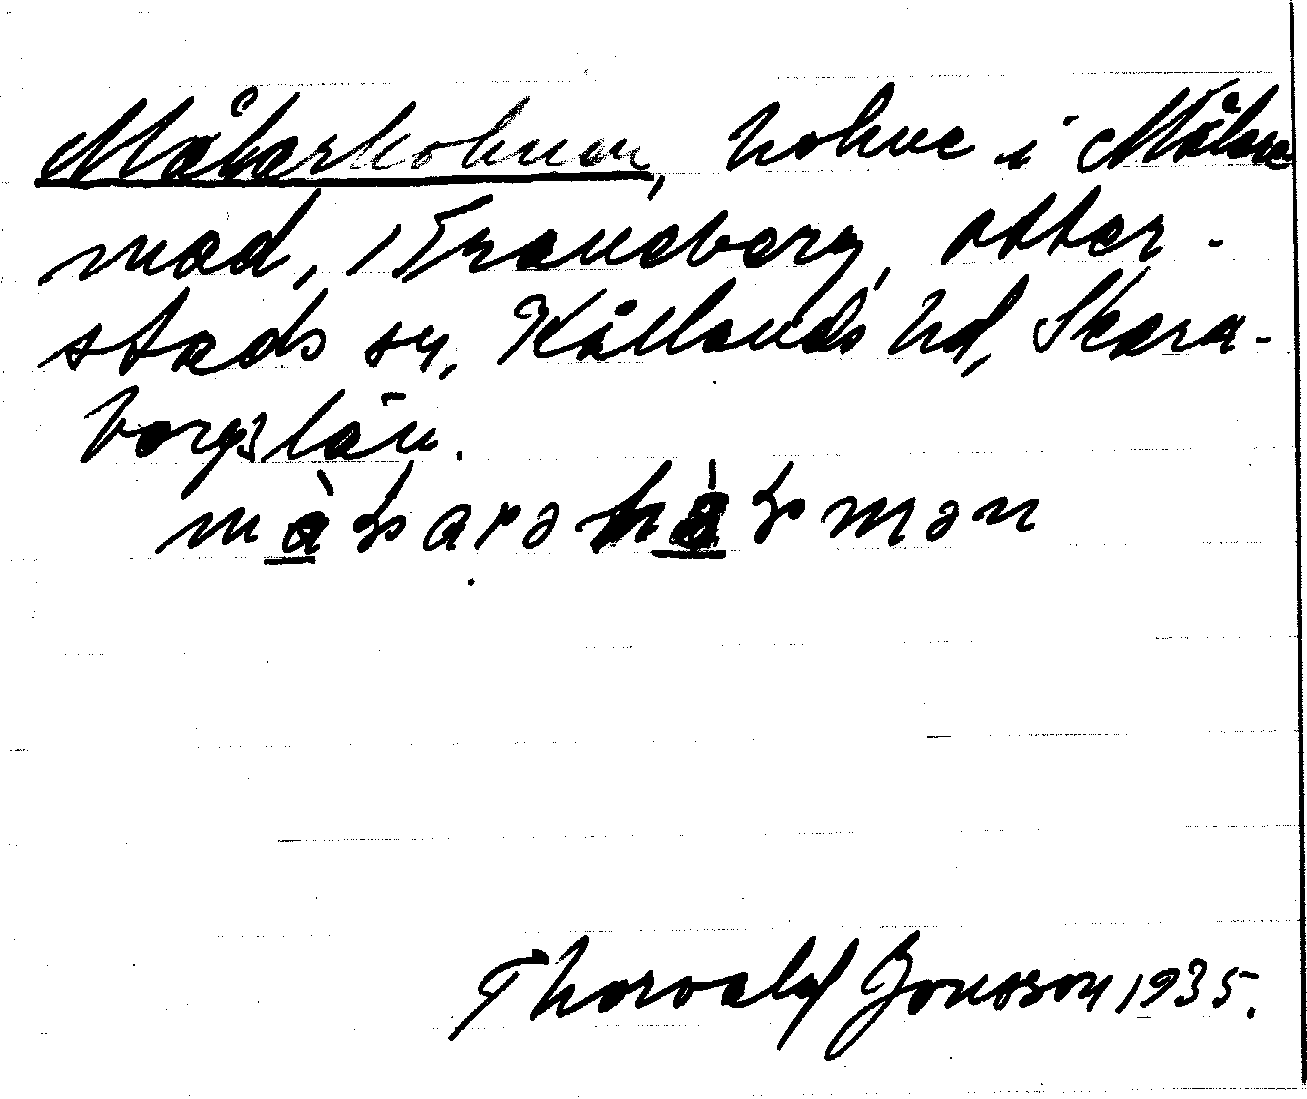 Måkerholmen, holme i Måker
mad, Traneberg, Otter-
stads sn, Kållands hd, Skara-
borgs län.
Thorvald Jonsson 1935.